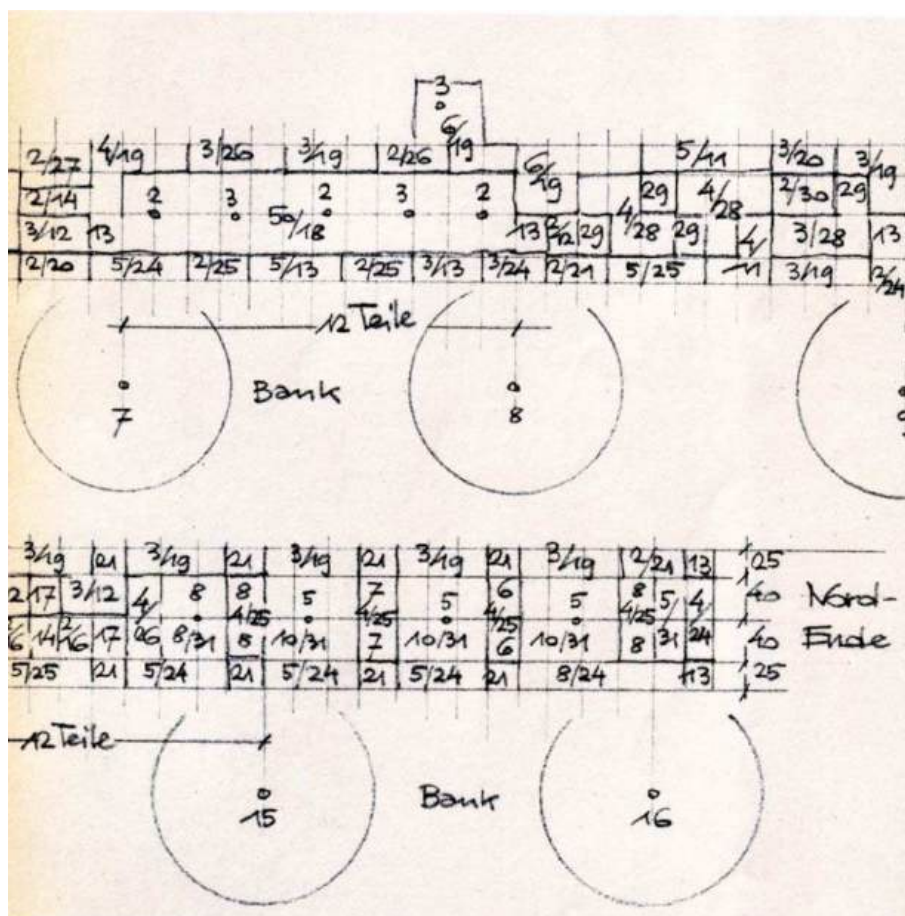 3
6/19
2/27 4/19 3/26 3/19 2/26 5/11 3/20 3/19
2/14 2 3 2 3 2 6/19 29 4/28 2/30 29
3/12 13 50/18 13 3/12 29 4/28 29 4/11 3/28 13
2/20 5/24 2/25 5/13 2/25 3/13 3/24 2/21 5/25 3/19 2/24
12 Teile
Bank
7 8 9
3/19 21 3/19 21 3/19 21 3/19 21 3/19 2/21 13 25
17 3/12 4/26 8 8 5 7 5 6 5 8 5/31 4/24 40 Nord-
14 2/16 17 8/31 4/25 8 10/31 4/25 7 10/31 4/25 6 10/31 4/25 8 40 Ende
5/25 21 5/24 21 5/24 21 5/24 21 8/24 13 25
12 Teile
Bank
15 16